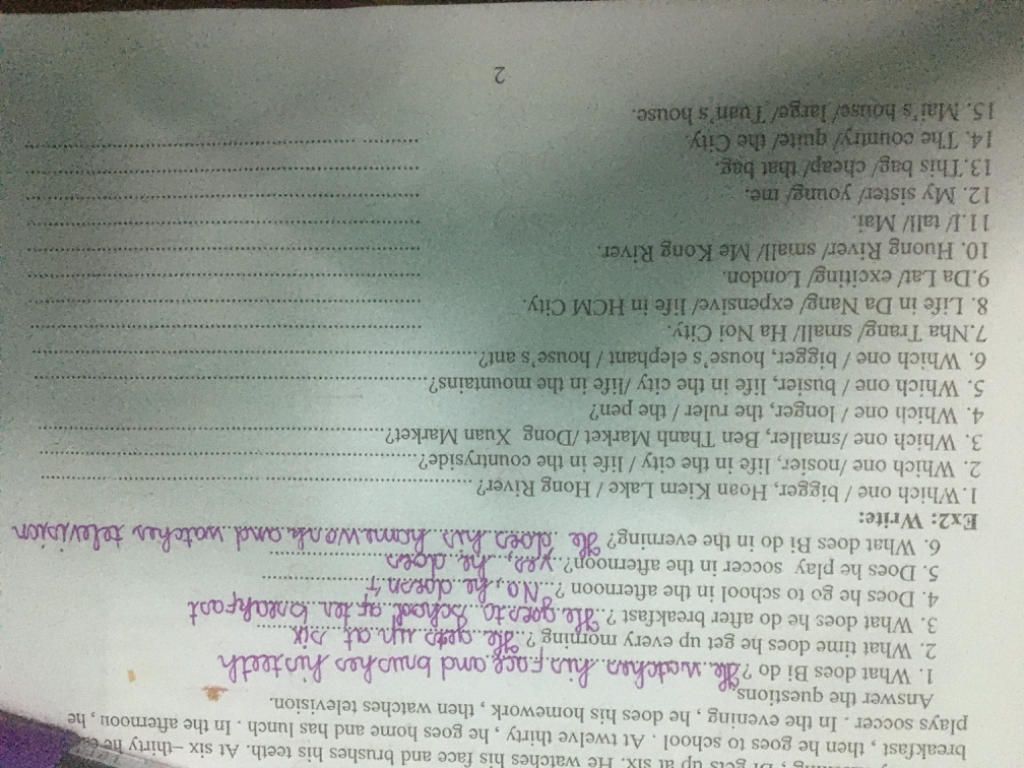 Bi gets up at six. He watches his face and brushes his teeth. At six –thirty he
breakfast , then he goes to school . At twelve thirty , he goes home and has lunch . In the afternoon , he
plays soccer . In the evening , he does his homework , then watches television.
Answer the questions.
1. What does Bi do ? He watches his face and brushes his teeth
2. What time does he get up every morning ? He gets up at six
3. What does he do after breakfast ? He goes to school after breakfast
4. Does he go to school in the afternoon ? No, he doesn't
5. Does he play soccer in the afternoon? yes, he does
6. What does Bi do in the everning? He does his homework and watches television
Ex2: Write:
1.Which one / bigger, Hoan Kiem Lake / Hong River?
2. Which one /nosier, life in the city / life in the countryside?
3. Which one /smaller, Ben Thanh Market /Dong Xuan Market?
4. Which one / longer, the ruler / the pen?
5. Which one / busier, life in the city /life in the mountains?
6. Which one / bigger, house's elephant / house's ant?
7.Nha Trang/ small/ Ha Noi City.
8. Life in Da Nang/ expensive/ life in HCM City.
9.Da Lat/ exciting/ London.
10. Huong River/ small/ Me Kong River.
11.I/ tall/ Mai.
12. My sister/ young/ me.
13.This bag/ cheap/ that bag.
14. The country/ quite/ the City.
15. Mai's house/ large/ Tuan's house.
2